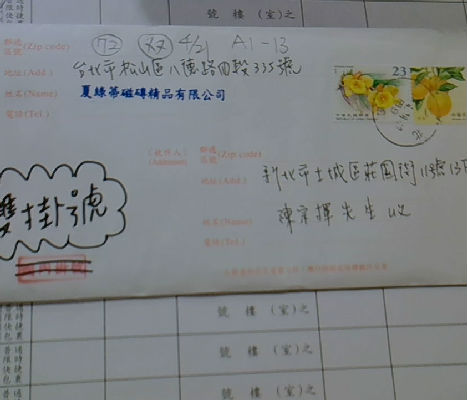 號樓(室)之
郵遞區號(Zip code) 72 双 4/21 A1-13
地址(Add.) 台北市松山區八德路四段335號
姓名(Name) 夏綠蒂磁磚精品有限公司
電話(Tel.)
23
(收件人)(Addressee) 郵遞區號(Zip code)
地址(Add.) 新北市土城區莊園街11號13F
姓名(Name) 陳宗揮先生 收
電話(Tel.)
雙掛號
號樓(室)之
普通 限時 快捷 包裹
號樓(室)之
普通 限時 快捷 包裹
號樓(室)之